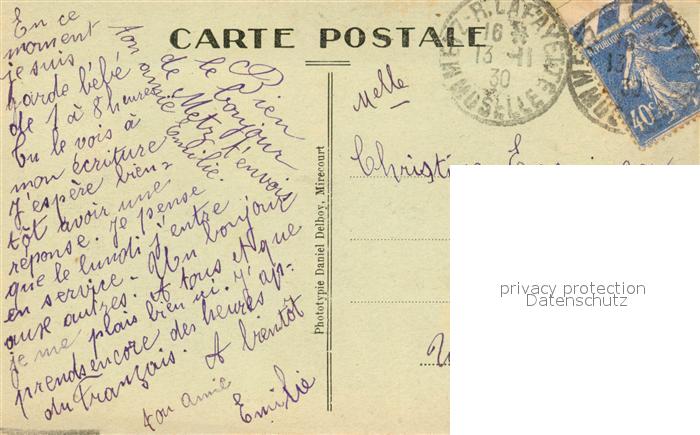 CARTE POSTALE
En ce
moment
je suis
garde bébé
de 1 à 8 heures
tu le vois à
mon écriture
J'espère bien-
tôt avoir une
réponse. Je pense
que le lundi j'entre
en service. Un bonjour
aux autres. A tous et que
je me plais bien ici. J'ap-
prends encore des heures
du Français. A bientôt
ton amie
Emilie
Bien
le bonjour
de Metz t'envois
ton amie
Emilie.
Phototypie Daniel Delboy, Mirecourt
Melle
METZ-R. LAFAYETTE
16
13 -11
30
MOSELLE
REPUBLIQUE FRANÇAISE
40c
privacy protection
Datenschutz